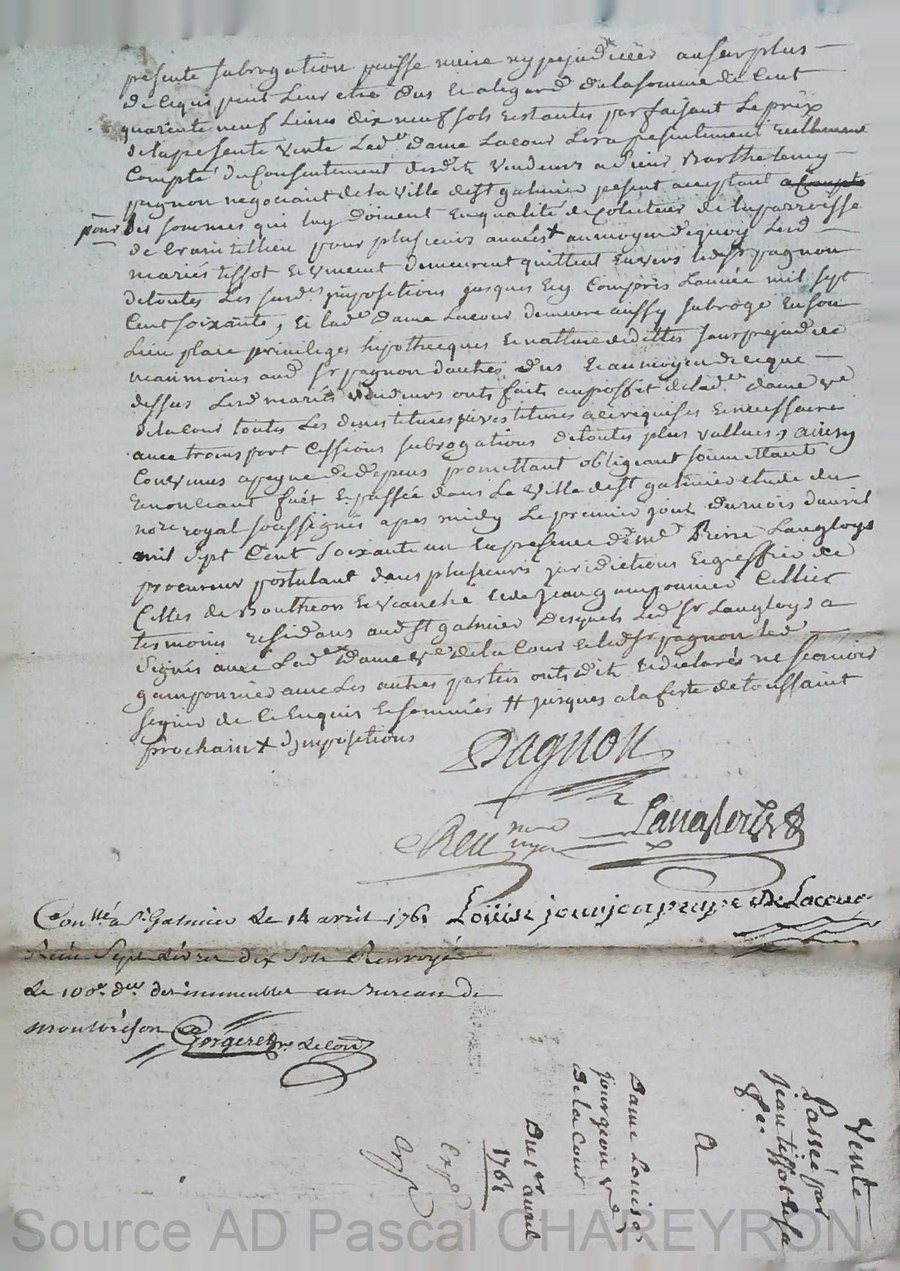 presente subrogation puisse nuire ny prejudicier au surplus
de ce qui peut leur etre dus et a legard de la somme de Cent
quarente neuf livres dix neuf sols restantes parfaisant le prix
de la presente vente lad.e dame Lacour sera presentement
Compté du Consentement desdits vendeurs a sieur Barthelemy
pagnon negociant de la ville de st galmier present acceptant a Compte
pour des sommes qui luy doivent en qualité de Colecteur de la parroisse
de plusieurs années† au moyen de quoy lesd
mariés tissot et vincent demeurent quittent envers led sr pagnon
de toutes les susd.es impositions jusques et y Compris l'année mil sept
Cent soixante, et lad.e dame Lacour demeure aussy subrogé en son
lieu place privileges hipothecques et nature de dittes sans prejudice
neanmoins aud sr pagnon dautres dus et au moyen de ce que
dessus lesd mariés vendeurs onts fait au proffit de lad.e dame v.e
de la Cour toutes les devestitures investitures a ce requises et necessaire
avec transport Cessions subrogations de toutes plus vallues, ainsy
Convenus a peyne de depens promettant obligeant soumettant
renonceant fait et passée dans la ville de st galmier etude du
no.re royal soussignés apres midy le premier jour du mois d'avril
mil sept Cent soixante un en presence de m.e Pierre Langloys
procureur postulant dans plusieurs juridictions et greffier de
Celles de Boutheon et veauche et de jean gamponnier Cellier
temoins residans aud st galmier desquels led sr Langloys a
signés avec lad.e dame v.e de la Cour et led sr pagnon led
gamponnier avec les autres parties onts dit et declarés ne scavoir
signer de ce enquis et sommés # jusques a la feste de toussaint
prochain † d'impositions
Pagnon
Langlois
Con.llé a st Galmier le 14 avril 1761 Louise jourjon v.e de Lacour
Receu sept livres dix sols Renvoyé
le 100.e d.er des immeubles au Bureau de
montbrison Gorgeret
Vente
Passée par
jean tissot et sa
A
Dame Louise
jourgeon v.e
De la Cour
Du 1.er avril
1761
Exp.é
Source AD Pascal CHAREYRON